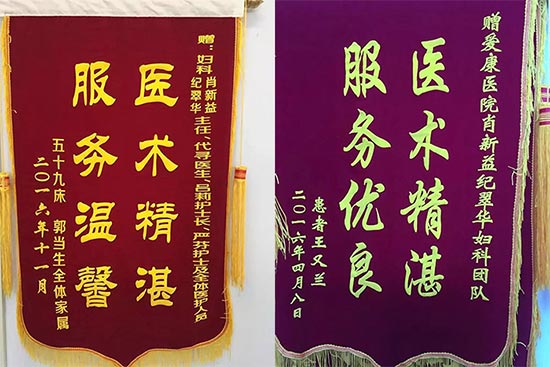 赠：妇科肖新益纪翠华主任、代寻医生、吕莉护士长、严芬护士及全体医护人员
医术精湛
服务温馨
五十九床 郭当生全体家属
二〇一六年十一月
赠爱康医院肖新益纪翠华妇科团队
医术精湛
服务优良
患者王又兰
二〇一六年四月八日